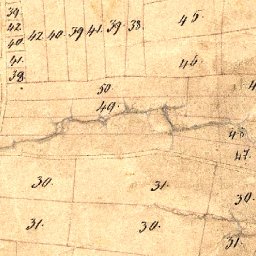 39.
42
40.
41.
38.
42. 40. 39 41. 39. 38.
45.
46.
50.
49.
48
47.
30. 31. 30.
31. 30. 31.